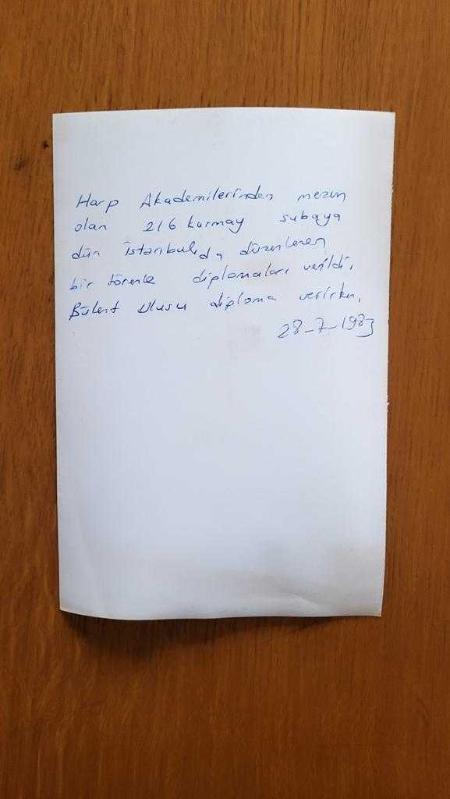 Harp Akademilerinden mezun
olan 216 kurmay subaya
dün İstanbul'da düzenlenen
bir törenle diplomaları verildi.
Bülent Ulusu diploma verirken.
28-7-1983